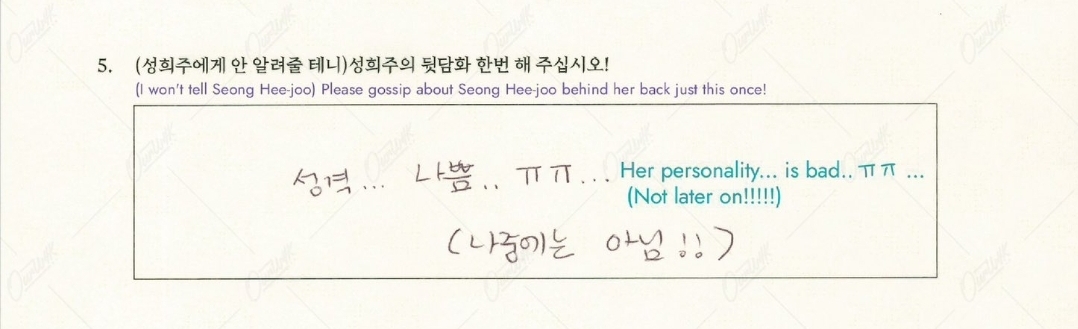 5. (성희주에게 안 알려줄 테니)성희주의 뒷담화 한번 해 주십시오!
(I won't tell Seong Hee-joo) Please gossip about Seong Hee-joo behind her back just this once!
성격... 나쁨.. ㅠㅠ...
Her personality... is bad.. ㅠㅠ ...
(Not later on!!!!!)
(나중에는 아님!!)